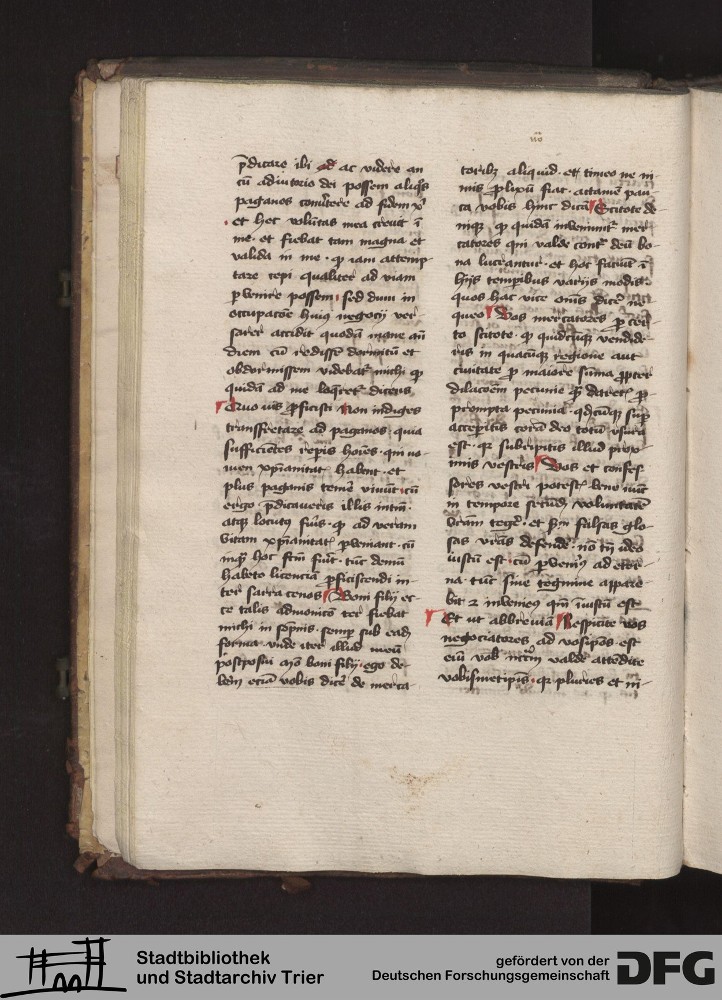 p̄dicare ibi ac videre an
cū adiutorio dei possem aliq̄s
paganos cōuertere ad fidem
et hec volūtas mea creuit ī
me · et fiebat tam magna et
valida in me · ꝙ iam attemp
tare cepi qualiter ad viam
ꝑuenire possem · sed dum in
occupacōe huiꝰ negocij ver
sarer accidit quodā mane an̄
diem cū redissē dormitū et
obdormissem videbat᷑ michi ꝙ
quidā ad me loq̄ret᷑ dicens
Quo vis ꝓficisci Non indiges
transfretare ad paganos · quia
sufficiētes repis hoīes · qui no
men xp̄ianitat᷑ habent · et
plus paganis vinūt · cū
ergo p̄dicaueris illis
atqꝫ locutꝰ fūis · ꝙ ad veram
vitam xp̄ianitat᷑ ꝑueniant · cū
inqͣ hoc fc̄m fūit · tūc demū
habeto licenciā ꝓficiscendi in
ter sarracenos Boni filij ec
ce talis admonico ter fiebat
michi in sōpnis · semꝑ sub eadē
forma · vnde iter illud meū
postposui boni filij · ego de
beo eciā vobis dicē de merca
torib⁊ aliquid · et timeo ne ni
mis ꝓlixū fiat · attamē pau
ca vobis hinc dicā Scitote de
niqꝫ · ꝙ quidā inueniūt᷑ mer
catores qui valde contͣ deū bo
na lucrantur · et hoc
hijs temꝑibus varijs modis
quos hac vice om̄s dicē ne
queo Vos mercatores ꝓ cer
to scitote · ꝙ quidcūqꝫ vendide
ritis in quacūqꝫ regione aut
ciuitate ꝓ maiore sūma ꝓpter
dilacōem pecunie qͣ daret᷑ ꝓ
prompta pecunia · qd̄cūqꝫ suꝑ
accepitis corā deo totū vsura
est · qr subripitis illud prox
imis vestris Vos et confes
sores vestri potestis bene
in tempore secundū voluntatē
vr̄am tegē · et ꝑ falsas glo
sas vr̄as defendē · nō tn̄ ideo
iustū est · cū ꝑuenitꝰ ad eter
na · tūc sine tegmine appare
bit ⁊ inuenietꝰ qm̄ iniustū est
Et vt abbreuiā Respicite vos
negociatores ad vosip̄os · est
eīū vob̄ valde attēdite
vobismetip̄is · qr plures et in
Stadtbibliothek
und Stadtarchiv Trier
gefördert von der
Deutschen Forschungsgemeinschaft
DFG